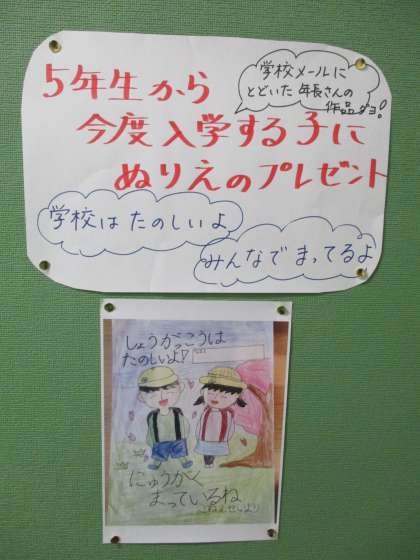 学校メールに
とどいた年長さんの
作品ダヨ!
5年生から
今度入学する子に
ぬりえのプレゼント
学校はたのしいよ
みんなでまってるよ
しょうがっこうは
たのしいよ!
にゅうがく
まっているね